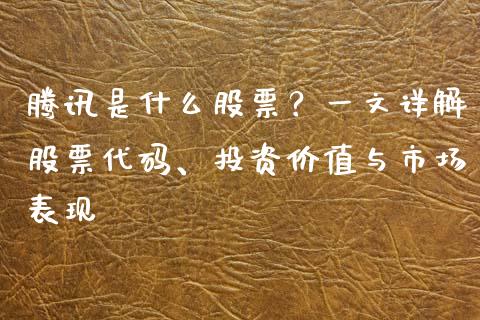 腾讯是什么股票？一文详解
股票代码、投资价值与市场
表现